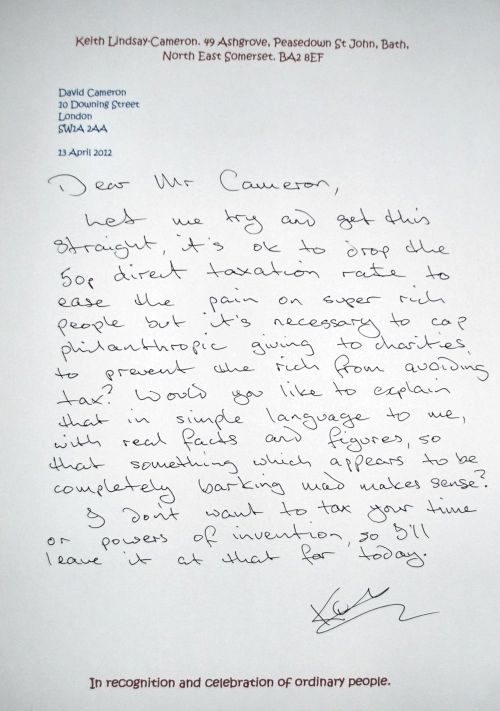 Keith Lindsay-Cameron. 49 Ashgrove, Peasedown St John, Bath,
North East Somerset. BA2 8EF
David Cameron
10 Downing Street
London
SW1A 2AA
13 April 2012
Dear Mr Cameron,
Let me try and get this
straight, it's ok to drop the
50p direct taxation rate to
ease the pain on super rich
people but it's necessary to cap
philanthropic giving to charities,
to prevent the rich from avoiding
tax? Would you like to explain
that in simple language to me,
with real facts and figures, so
that something which appears to be
completely barking mad makes sense?
I don't want to tax your time
or powers of invention, so I'll
leave it at that for today.
In recognition and celebration of ordinary people.